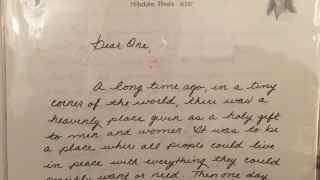 Dear One,
A long time ago, in a tiny
corner of the world, there was a
heavenly place given as a holy gift
to men and women. It was to be
a place where all people could live
in peace with everything they could
possibly want or need. Then one day